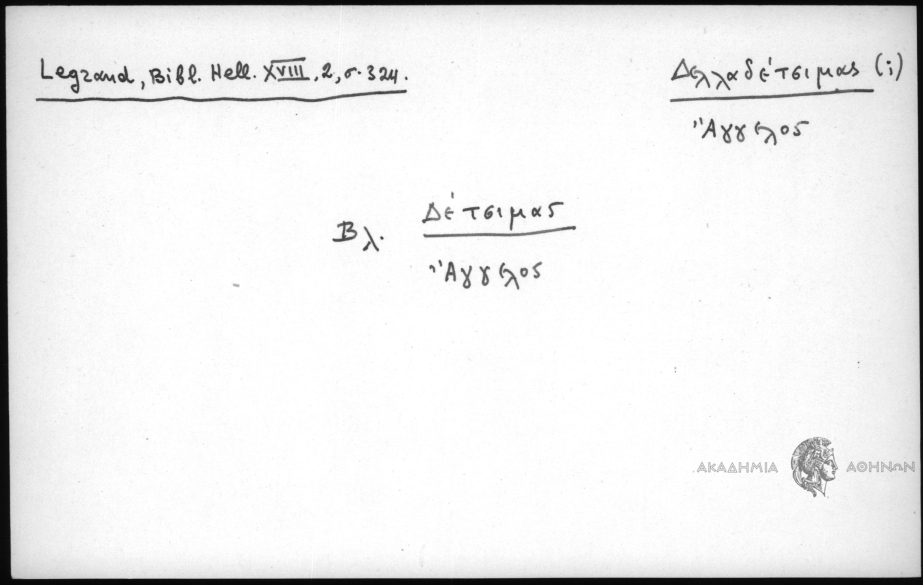 Legrand, Bibl. Hell. XVIII, 2, σ. 324.
Δελλαδέτσιμας (i)
Ἄγγελος
Βλ. Δέτσιμας
Ἄγγελος
ΑΚΑΔΗΜΙΑ ΑΘΗΝΩΝ